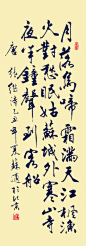 月落烏啼霜滿天江楓漁
火對愁眠姑蘇城外寒山寺
夜半鐘聲到客船
唐張繼詩丑年夏蘇適於北京